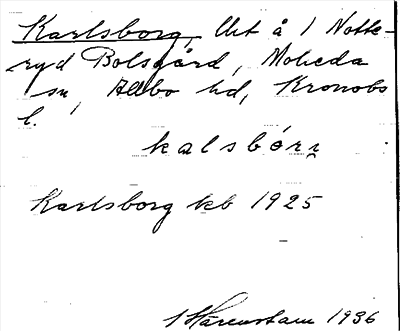 Karlsborg, lht å 1 Notte-
ryd Bolsgård, Moheda
sn, Allbo hd, Kronobs
l.
kalsbórr
Karlsborg kb 1925
Härenstam 1936